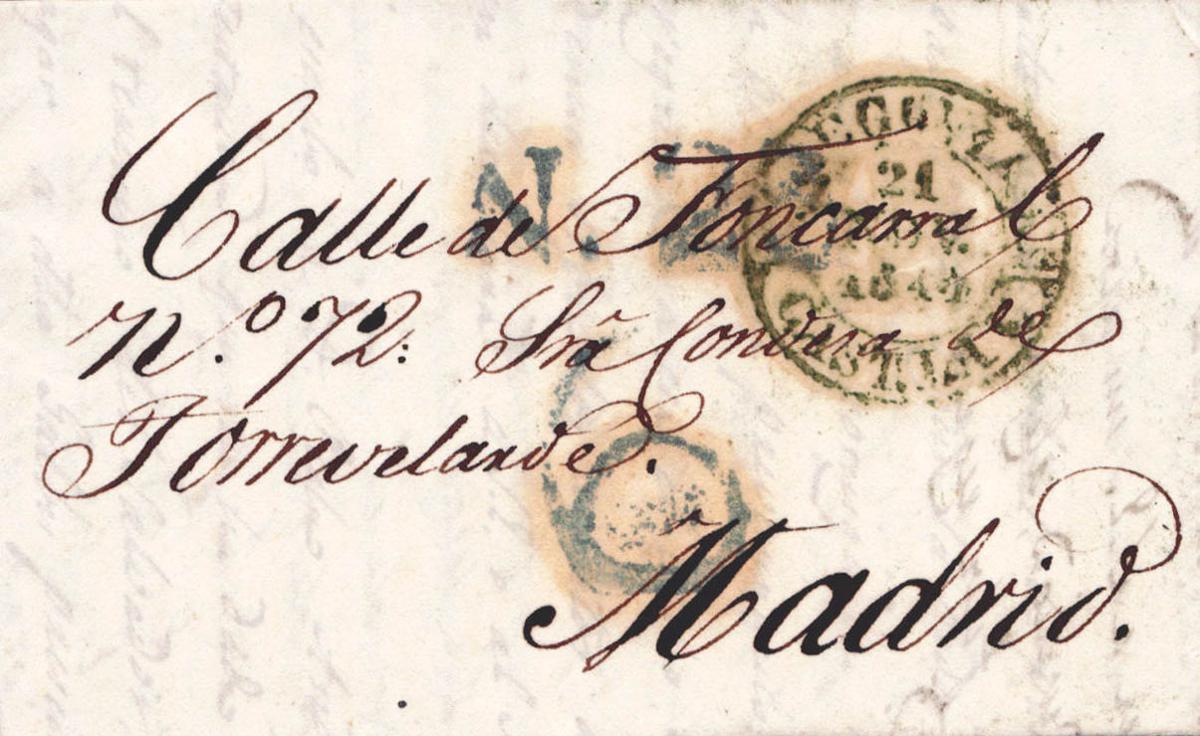 Calle de Foncarral
N.º 72. Srã Condesa de
Torrevelarde.
Madrid.
N. 22
21
1844
6